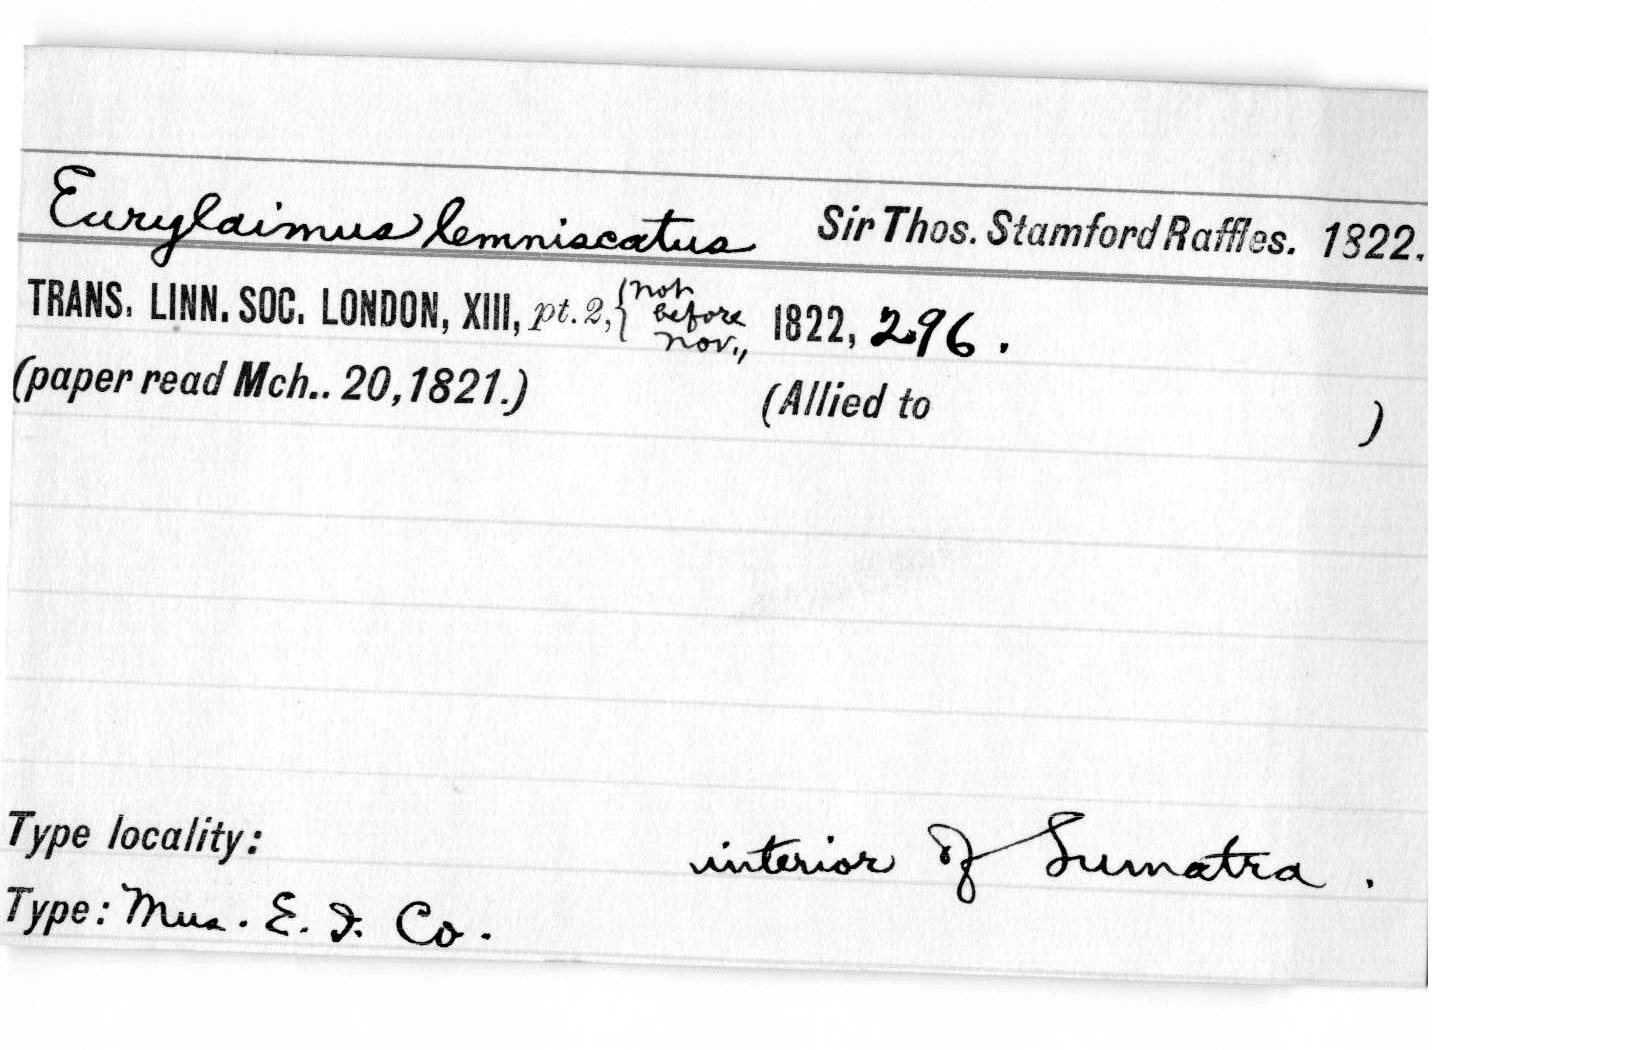 Eurylaimus lemniscatus Sir Thos. Stamford Raffles. 1822.
TRANS. LINN. SOC. LONDON, XIII, pt. 2, {not before Nov., 1822, 296.
(paper read Mch.. 20, 1821.) (Allied to )
Type locality: interior of Sumatra.
Type: Mus. E. I. Co.